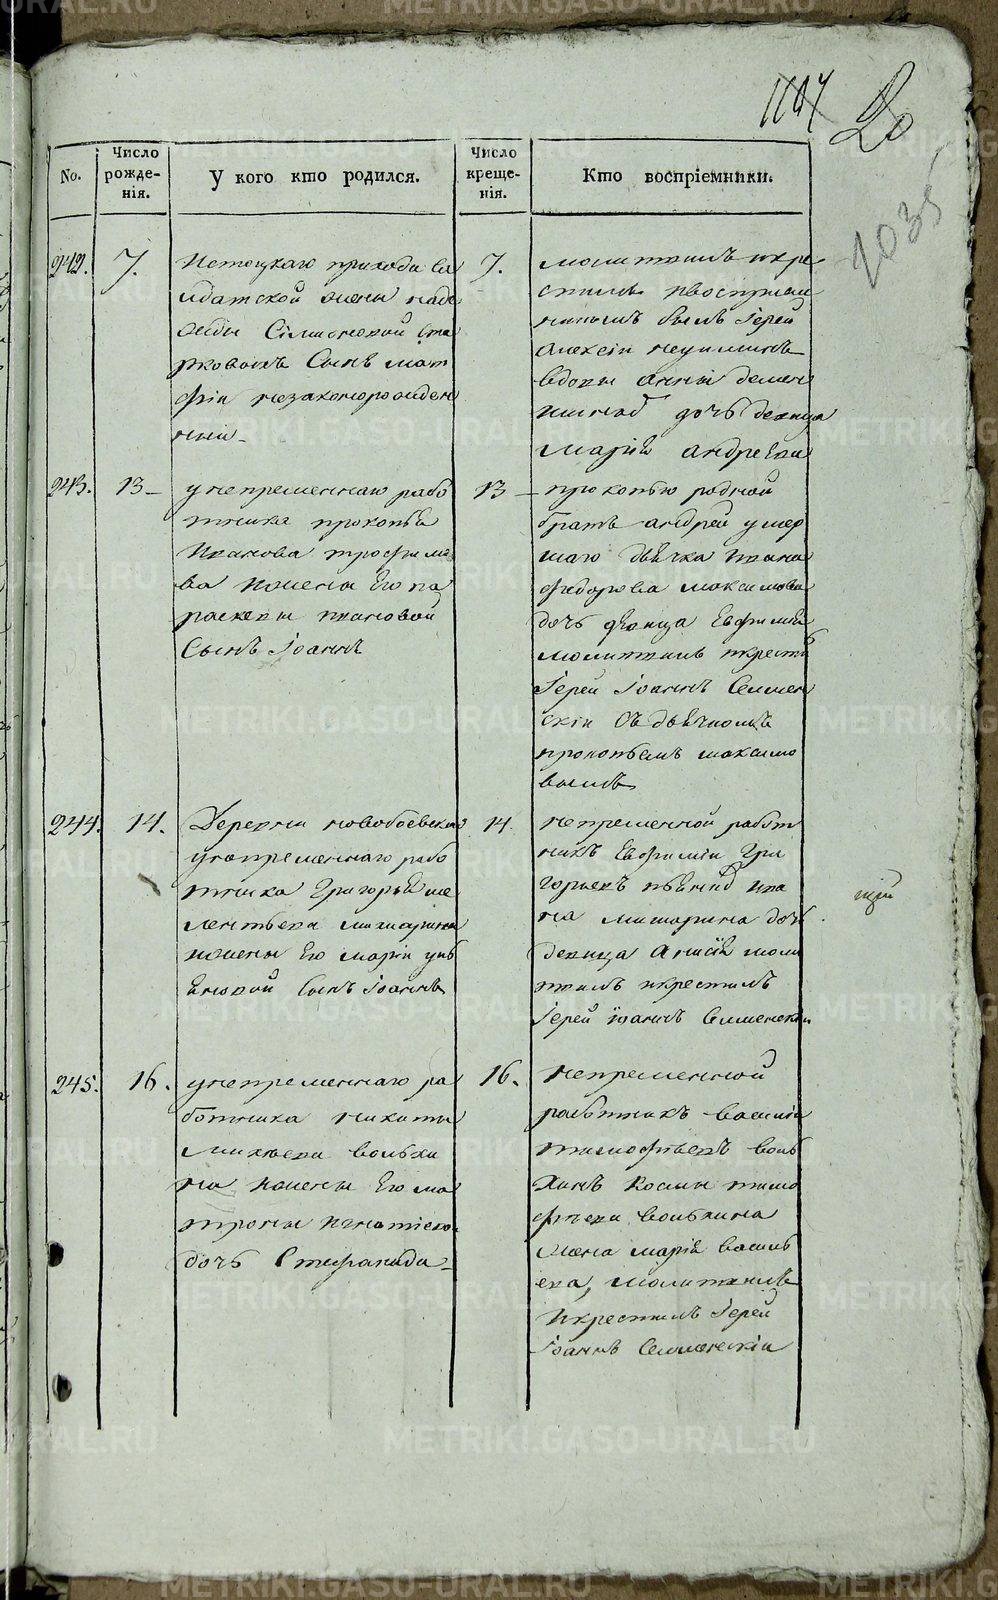 1147
20
1035
No.
Число рожде-нія.
У кого кто родился.
Число креще-нія.
Кто воспріемники.
242.
7.
Истоцкаго прихода са
лдатской жены наде
жды Сімионовой
Сынъ мат
фіи незаконорожден
ный
7.
молитвилъ икре
стилъ ивоспріем
никомъ былъ Іерей
Алексій
вдовы анны
дочь девица
марія андреева
243.
13 –
унепременнаго рабо
тника прокопья
Иванова трофимо
ва ижены Его па
раскевы ивановой
Сынъ Іоаннъ
13 –
прокопью родной
братъ андрей умер
шаго дьячка ивана
федорова максимова
дочь девица Евфимья
молитвилъ икрестил
Іерей Іоаннъ Селмен
скій съ дьячкомъ
прокопьемъ максимо
вымъ
244.
14.
Деревни новобоевской
унепременнаго рабо
тника Григорья ме
лентьева мишарина
ижены Его маріи
Сынъ Іоаннъ
14.
непременной работ
никъ Евфимій Гри
горьевъ ива
на мишарина дочь
девица Анисія моли
твилъ икрестилъ
Іерей іоаннъ Селменскій
245.
16.
унепременнаго ра
ботника никиты
михеева волькхи
на ижены Его ма
троны игнатіевой
дочь Стефанида
16.
непременной
работникъ василій
тимофеевъ воль
хинъ космы тимо
феева волькхина
жена марія василь
ева, молитвилъ
икрестилъ Іерей
іоаннъ Селменскій
METRIKI.GASO-URAL.RU